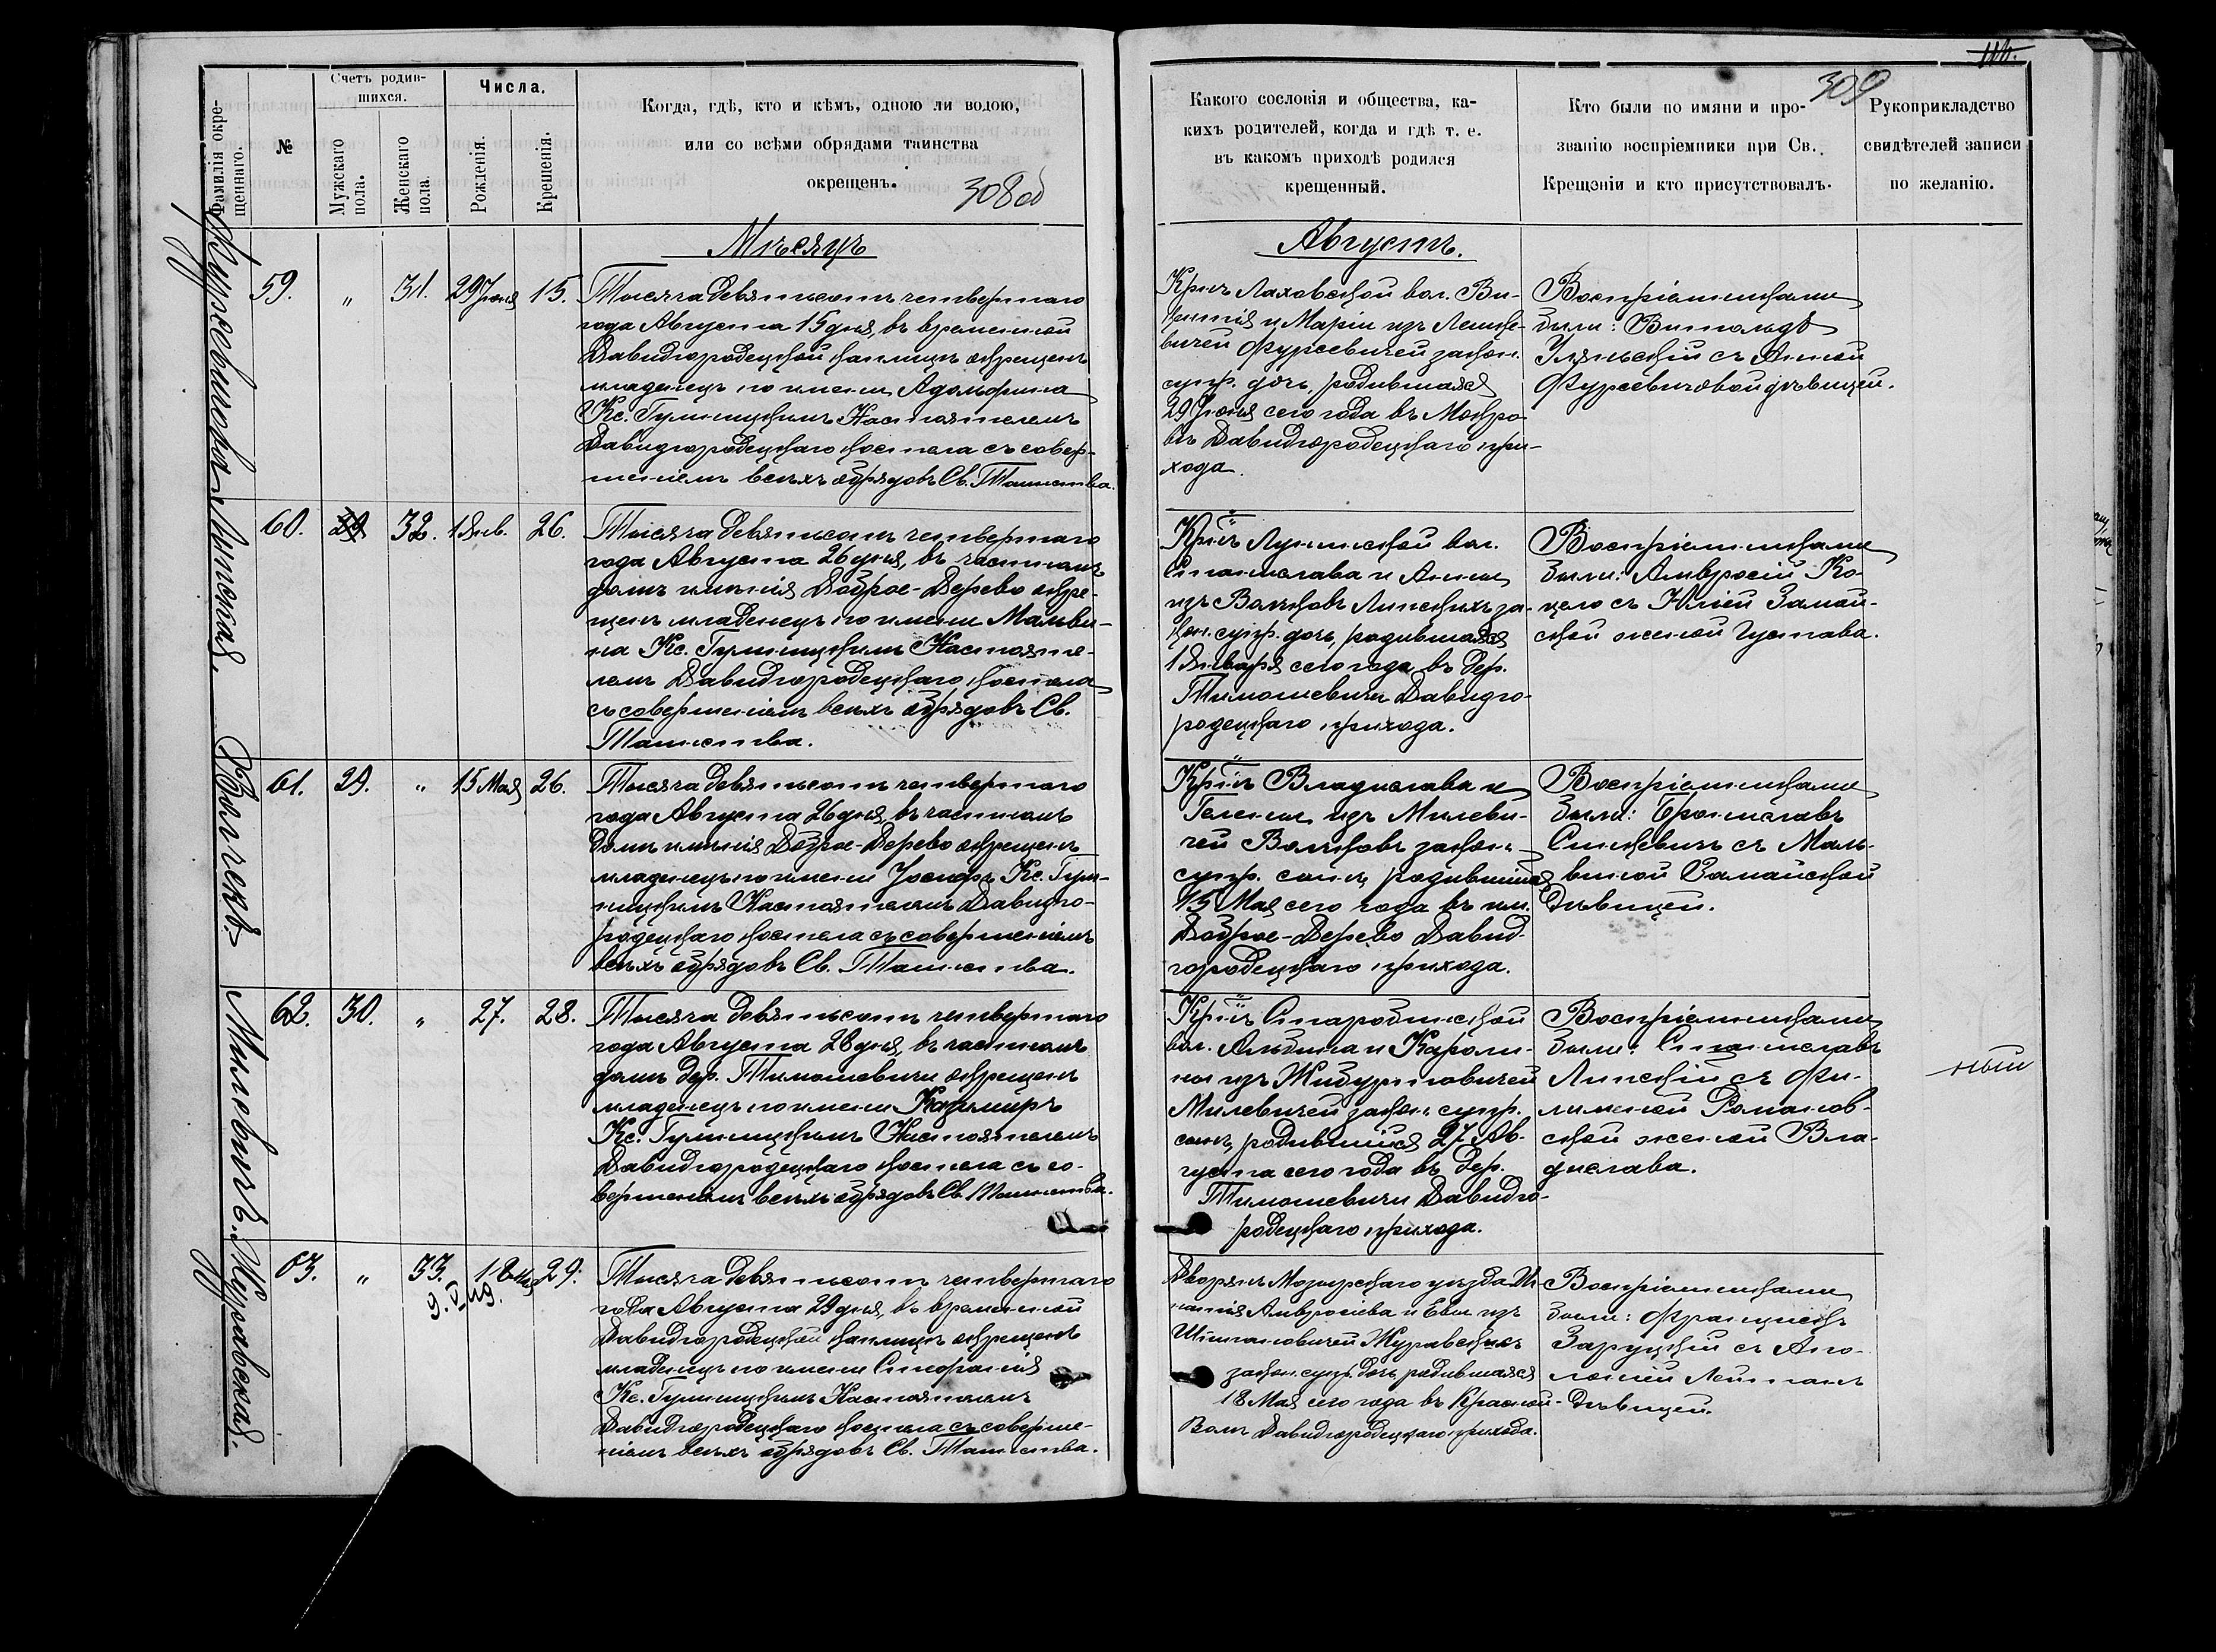 116.
309
Фамилія окре-
щеннаго.
№
Счетъ родив-
шихся.
Мужскаго
пола.
Женскаго
пола.
Числа.
Рожденія.
Крещенія.
Когда, гдѣ, кто и кѣмъ, одною ли водою,
или со всѣми обрядами таинства
окрещенъ.
308 об
Какого сословія и общества, ка-
кихъ родителей, когда и гдѣ т. е.
въ какомъ приходѣ родился
крещенный.
Кто были по имяни и про-
званію воспріемники при Св.
Крещеніи и кто присутствовалъ.
Рукоприкладство
свидѣтелей записи
по желанію.
Мѣсяцъ
Августъ.
Фурсевичовна
59. " 31. 29 Іюня 15.
Тысяча девятьсотъ четвертаго
года Августа 15 дня, въ временной
Давидгородецкой каплицѣ окрещенъ
младенецъ по имени Адольфина
Кс. Гумницкимъ Настоятелемъ
Давидгородецкаго костела съ совер-
шеніемъ всѣхъ обрядовъ Св. Таинства.
Кр-нъ Лаховской вол. Ви-
кентія и Маріи изъ Лешке-
вичей Фурсевичей закон.
супр. дочь, родившаяся
29 Іюня сего года въ Мокро-
вѣ Давидгородецкаго при-
хода.
Воспріемниками
были: Витольдъ
Улянскій съ Анной
Фурсевичовой дѣвицей.
Липская.
60. 29 32. 1 Янв. 26.
Тысяча девятьсотъ четвертаго
года Августа 26 дня, въ частномъ
домѣ имѣнія Доброе-Дерево окре-
щенъ младенецъ по имени Мальви-
на Кс. Гумницкимъ Настояте-
лемъ Давидгородецкаго костела
съ совершеніемъ всѣхъ обрядовъ Св.
Таинства.
Кр-нъ Лунинской вол.
Станислава и Анны
изъ Волчковъ Липскихъ за-
кон. супр. дочь, родившаяся
1 Января сего года въ дер.
Тимошевичи Давидго-
родецкаго прихода.
Воспріемниками
были: Амвросій Ко-
цело съ Юліей Замай-
ской женой Густава.
Волчекъ.
61. 29. " 15 Мая 26.
Тысяча девятьсотъ четвертаго
года Августа 26 дня, въ частномъ
домѣ имѣнія Доброе-Дерево окрещенъ
младенецъ по имени Іосифъ Кс. Гум-
ницкимъ Настоятелемъ Давидго-
родецкаго костела съ совершеніемъ
всѣхъ обрядовъ Св. Таинства.
Кр-нъ Владислава и
Гелены изъ Милеви-
чей Волчковъ закон.
супр. сынъ, родившійся
15 Мая сего года въ им.
Доброе-Дерево Давид-
городецкаго прихода.
Воспріемниками
были: Брониславъ
Синкевичъ съ Маль-
виной Замайской
Дѣвицей.
Милевичъ.
62. 30. " 27. 28.
Тысяча девятьсотъ четвертаго
года Августа 28 дня, въ частномъ
домѣ дер. Тимошевичи окрещенъ
младенецъ по имени Казиміръ
Кс. Гумницкимъ Настоятелемъ
Давидгородецкаго костела съ со-
вершеніемъ всѣхъ обрядовъ Св. Таинства.
Кр-нъ Старобинской
вол. Альбина и Кароли-
ны изъ Жибуртовичей
Милевичей закон. супр.
сынъ, родившійся 27 Ав-
густа сего года въ дер.
Тимошевичи Давидго-
родецкаго прихода.
Воспріемниками
были: Станиславъ
Липскій съ Фи-
лименой Романов-
ской женой Вла-
дислава.
ный
Журавская.
63. " 33. 18 Мая 29.
Тысяча девятьсотъ четвертаго
года Августа 29 дня, въ временной
Давидгородецкой каплицѣ окрещенъ
младенецъ по имени Стефанія
Кс. Гумницкимъ Настоятелемъ
Давидгородецкаго костела съ соверше-
ніемъ всѣхъ обрядовъ Св. Таинства.
Дворянъ Мозырскаго уѣзда Иг-
натія Амвросіева и Евы изъ
Журавскихъ
закон. супр. дочь, родившаяся
18 Мая сего года въ Красной-
Волѣ Давидгородецкаго прихода.
Воспріемниками
были: Францискъ
Заруцкій съ Апо-
лоніей
Дѣвицей.